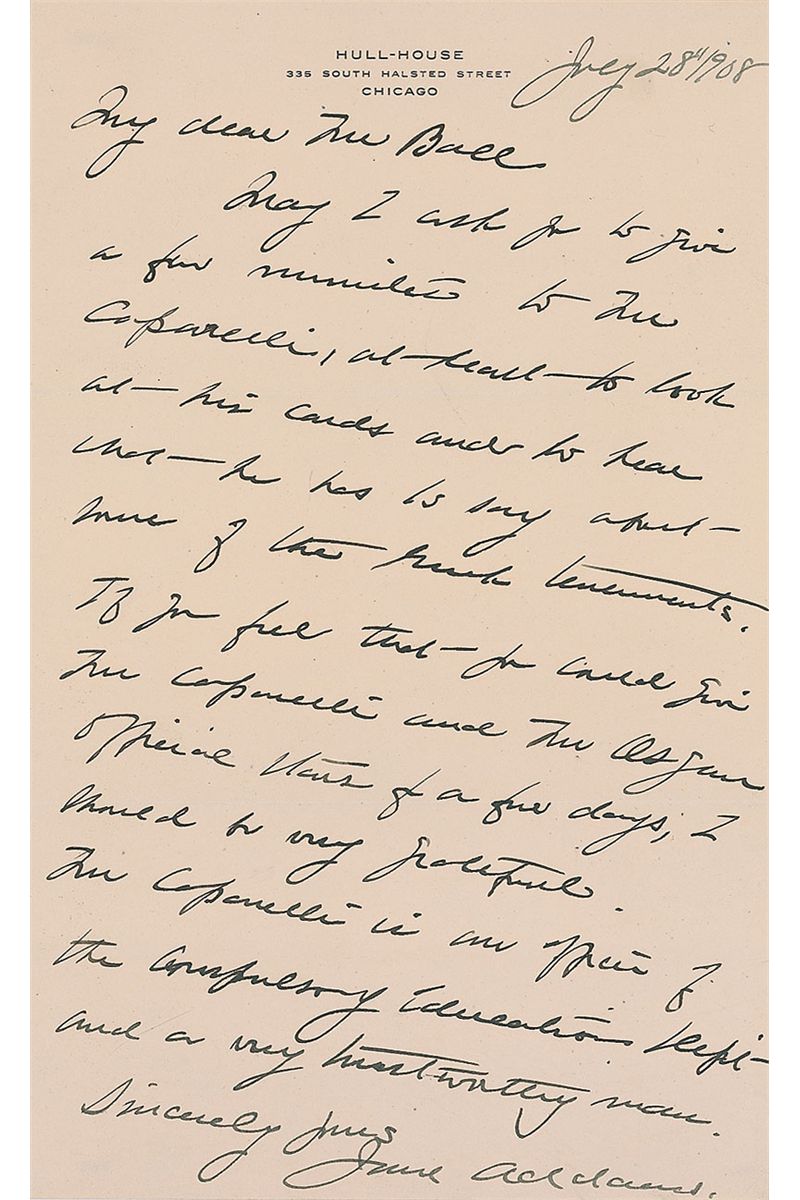 HULL-HOUSE
335 SOUTH HALSTED STREET
CHICAGO
July 28"/908
My dear Mr Ball
May I ask you to give
a few minutes to Mr
Caponelli, at least to look
at his cards and to hear
what he has to say about
some of the Greek tenements.
If you feel that you could give
Mr Caponelli and Mr
official stars for a few days, I
should be very grateful.
Mr Caponelli is an officer of
the Compulsory Education Dept
and a very trustworthy man.
Sincerely yours
Jane Addams.